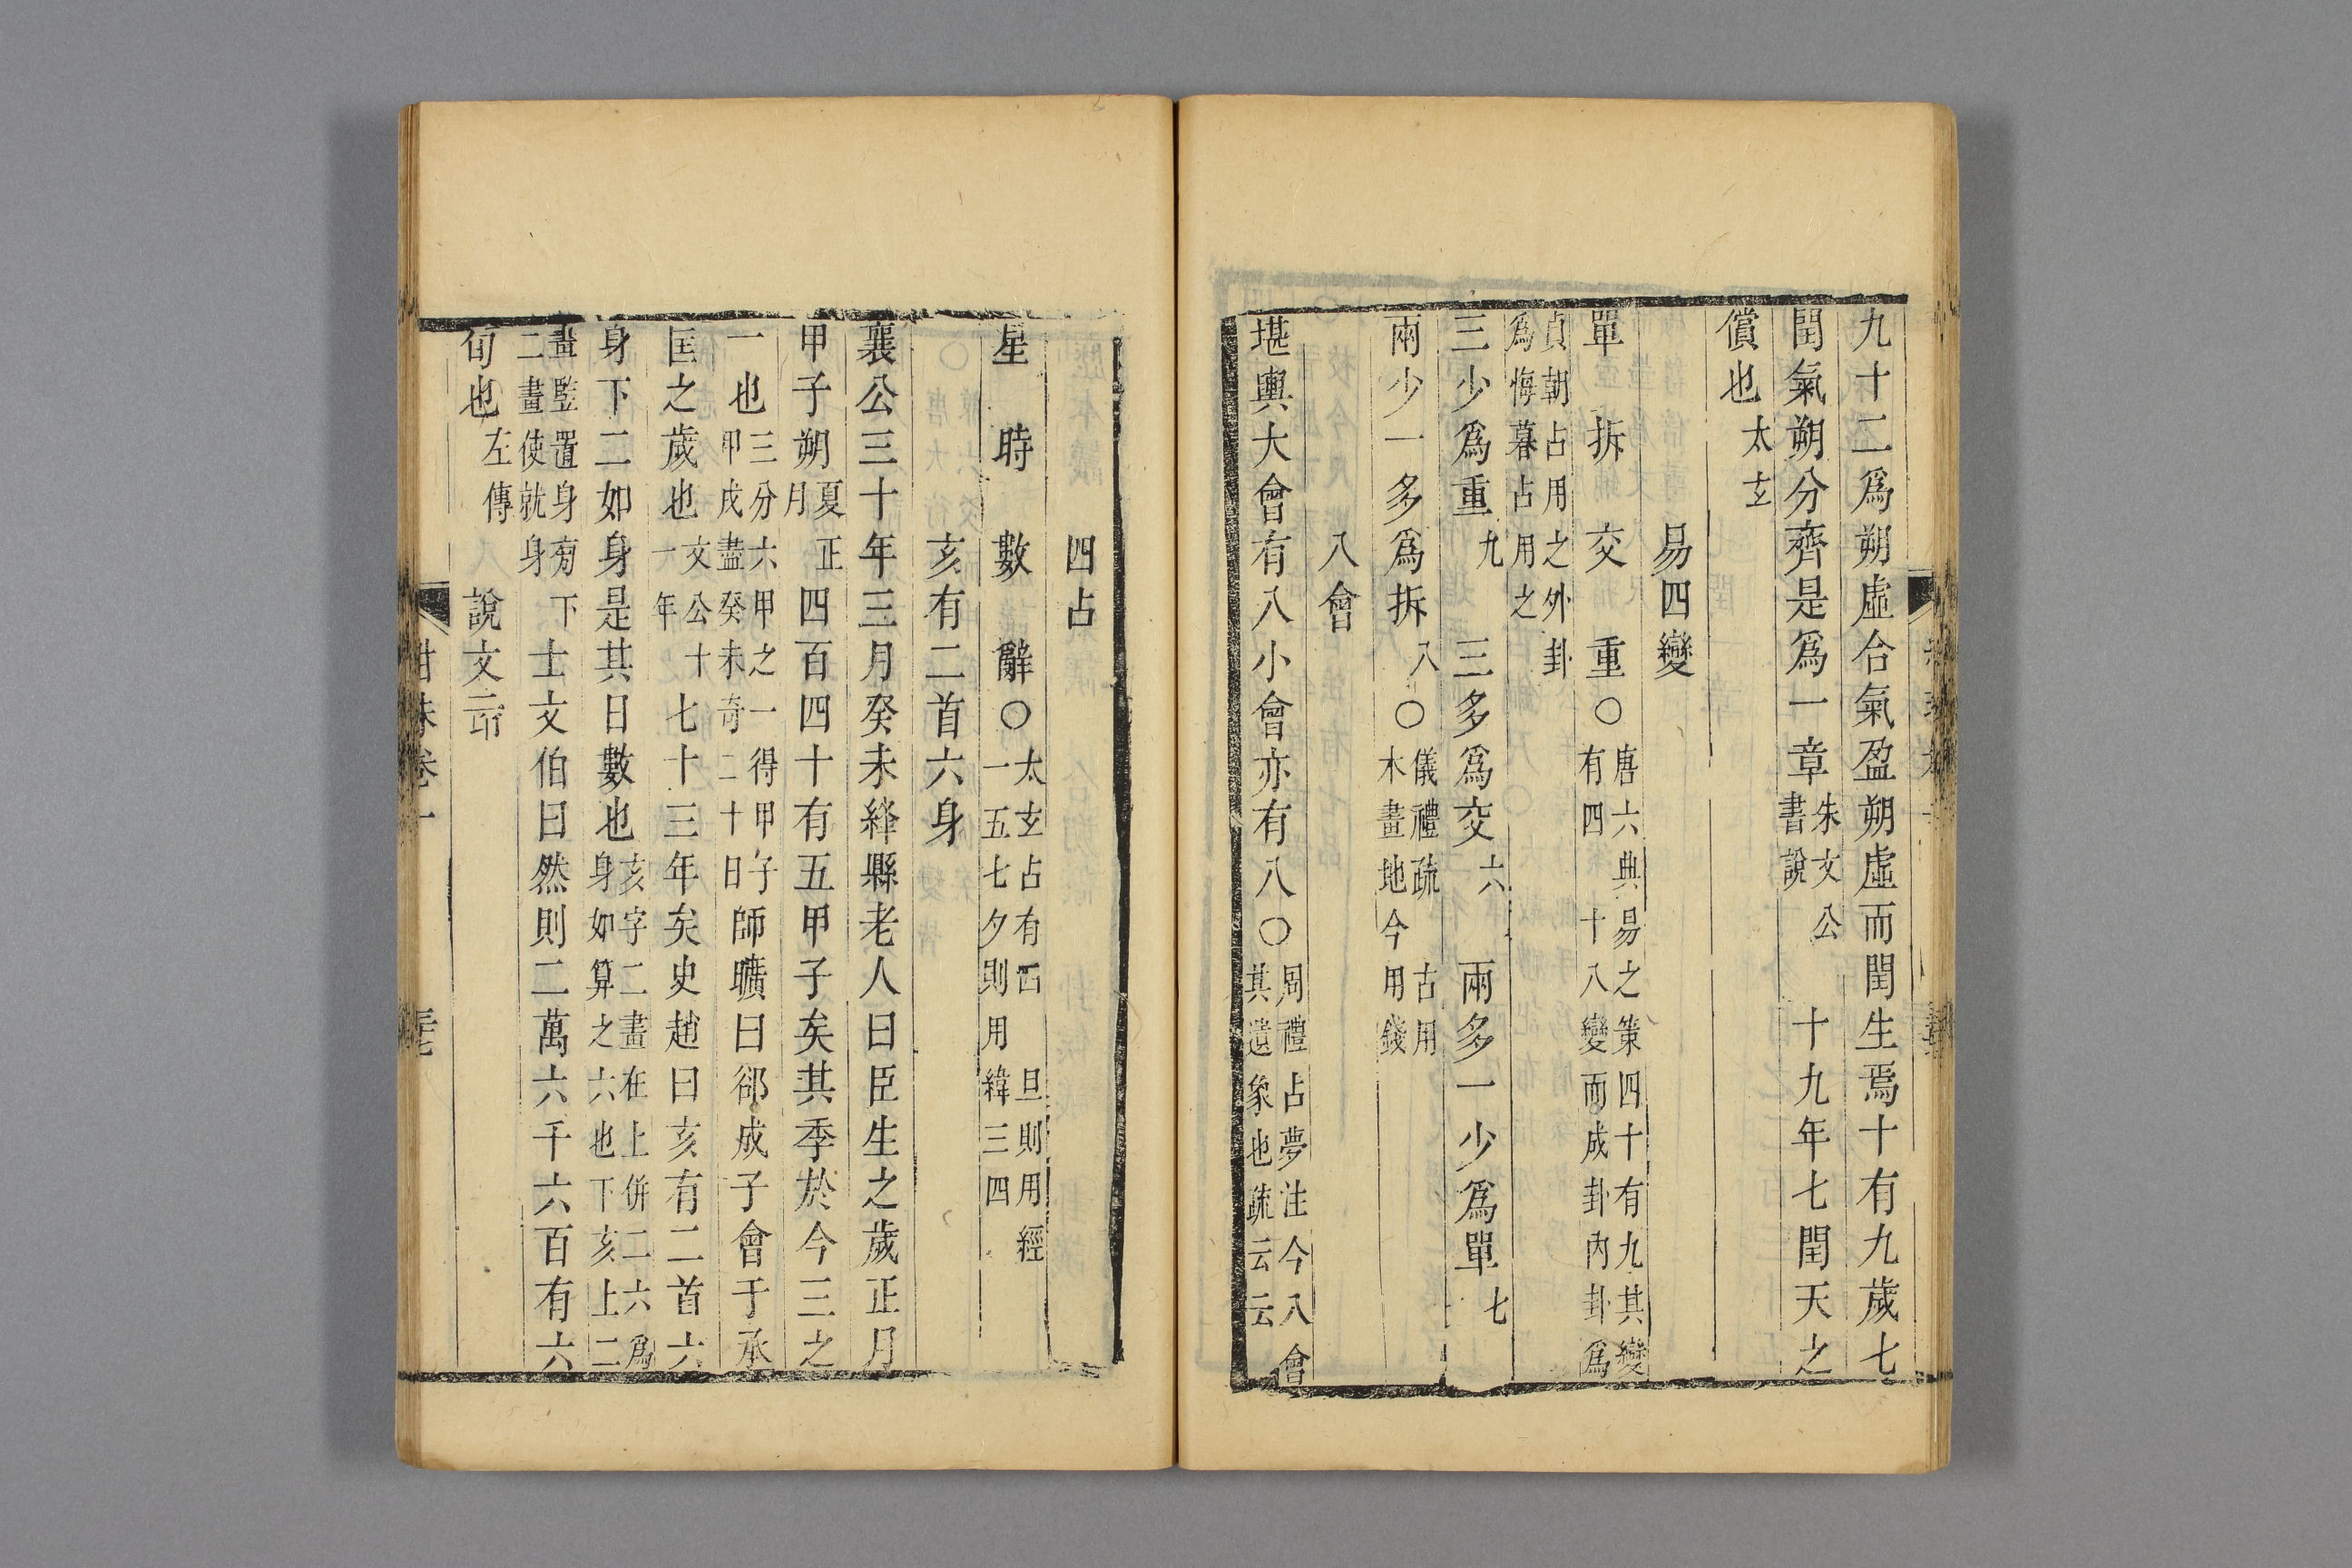 九十二爲朔虛合氣盈朔虛而閏生焉十有九歲七
閏氣朔分齊是爲一章朱文公書說　十九年七閏天之
償也太玄
易四變
單　拆　交　重○唐六典易之策四十有九其變有四十八變而成卦内卦爲
貞朝占用之外卦爲悔暮占用之
三少爲重九　三多爲交六　兩多一少爲單七
兩少一多爲拆八○儀禮疏古用木畫地今用錢
八會
堪輿大會有八小會亦有八○周禮占夢注今八會其遺象也疏云云
四占
星　時　數　辭○太玄占有四旦則用經一五七夕則用緯三四
亥有二首六身
襄公三十年三月癸未絳縣老人曰臣生之歲正月
甲子朔夏正月四百四十有五甲子矣其季於今三之
一也三分六甲之一得甲子甲戌盡癸未奇二十日師曠曰郤成子會于承
匡之歲也文公十一年七十三年矣史趙曰亥有二首六
身下二如身是其日數也亥字二畫在上併二六爲身如算之六也下亥上二
畫監置身有下二畫使就身士文伯曰然則二萬六千六百有六
旬也左傳　說文云
卷一